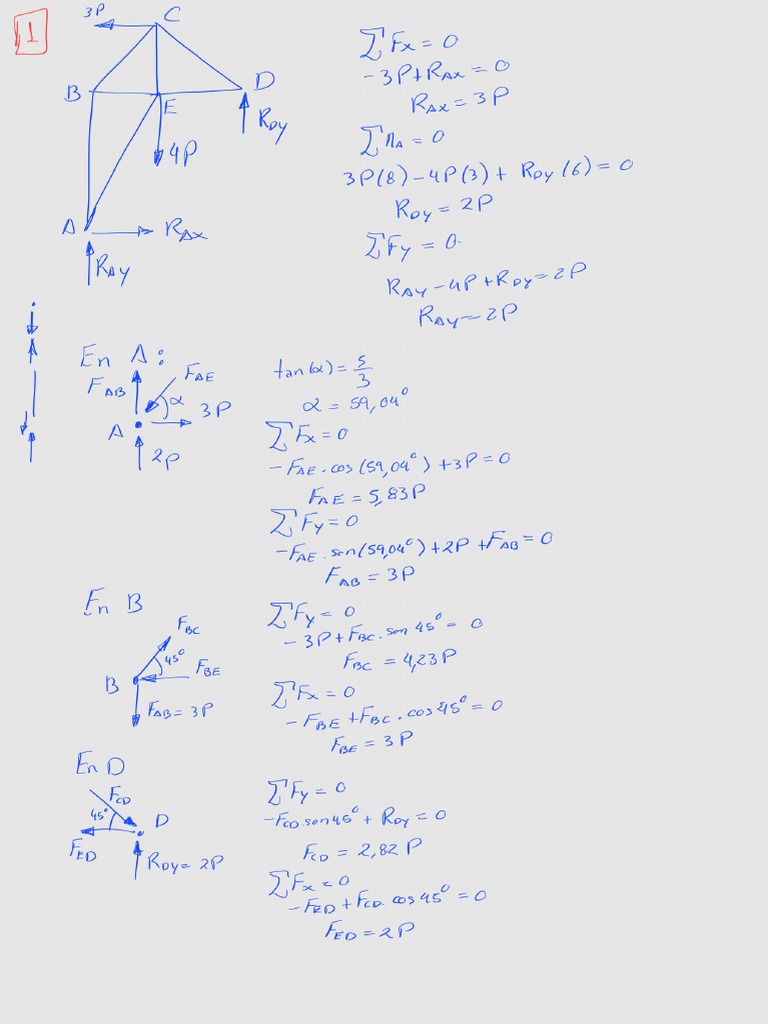 1
3P
C
B
D
E
R_DY
4P
A
R_AX
R_AY
ΣFx = 0
-3P+R_AX = 0
R_AX = 3P
ΣM_A = 0
3P(8) - 4P(3) + R_DY(6) = 0
R_DY = 2P
ΣFy = 0
R_AY - 4P + R_DY = 2P
R_AY = 2P
En A:
F_AB
F_AE
α
3P
A
2P
tan(α) = 5/3
α = 59,04°
ΣFx = 0
-F_AE.cos(59,04°) + 3P = 0
F_AE = 5,83P
ΣFy = 0
-F_AE.sen(59,04°) + 2P + F_AB = 0
F_AB = 3P
En B
F_BC
45°
F_BE
B
F_AB = 3P
ΣFy = 0
-3P + F_BC.sen 45° = 0
F_BC = 4,23P
ΣFx = 0
-F_BE + F_BC.cos 45° = 0
F_BE = 3P
En D
F_CD
45°
D
F_ED
R_DY = 2P
ΣFy = 0
-F_CD.sen45° + R_DY = 0
F_CD = 2,82P
ΣFx = 0
-F_ED + F_CD.cos45° = 0
F_ED = 2P